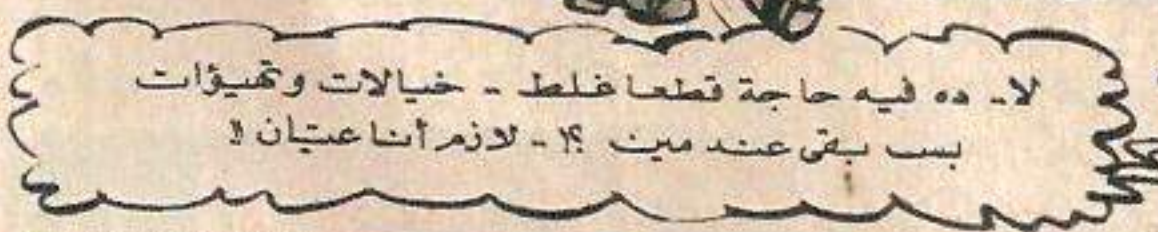 لا - ده فيه حاجة قطعا غلط - خيالات وتهيؤات
بس بقى عند مين ؟! - لازم أنا عيان !!